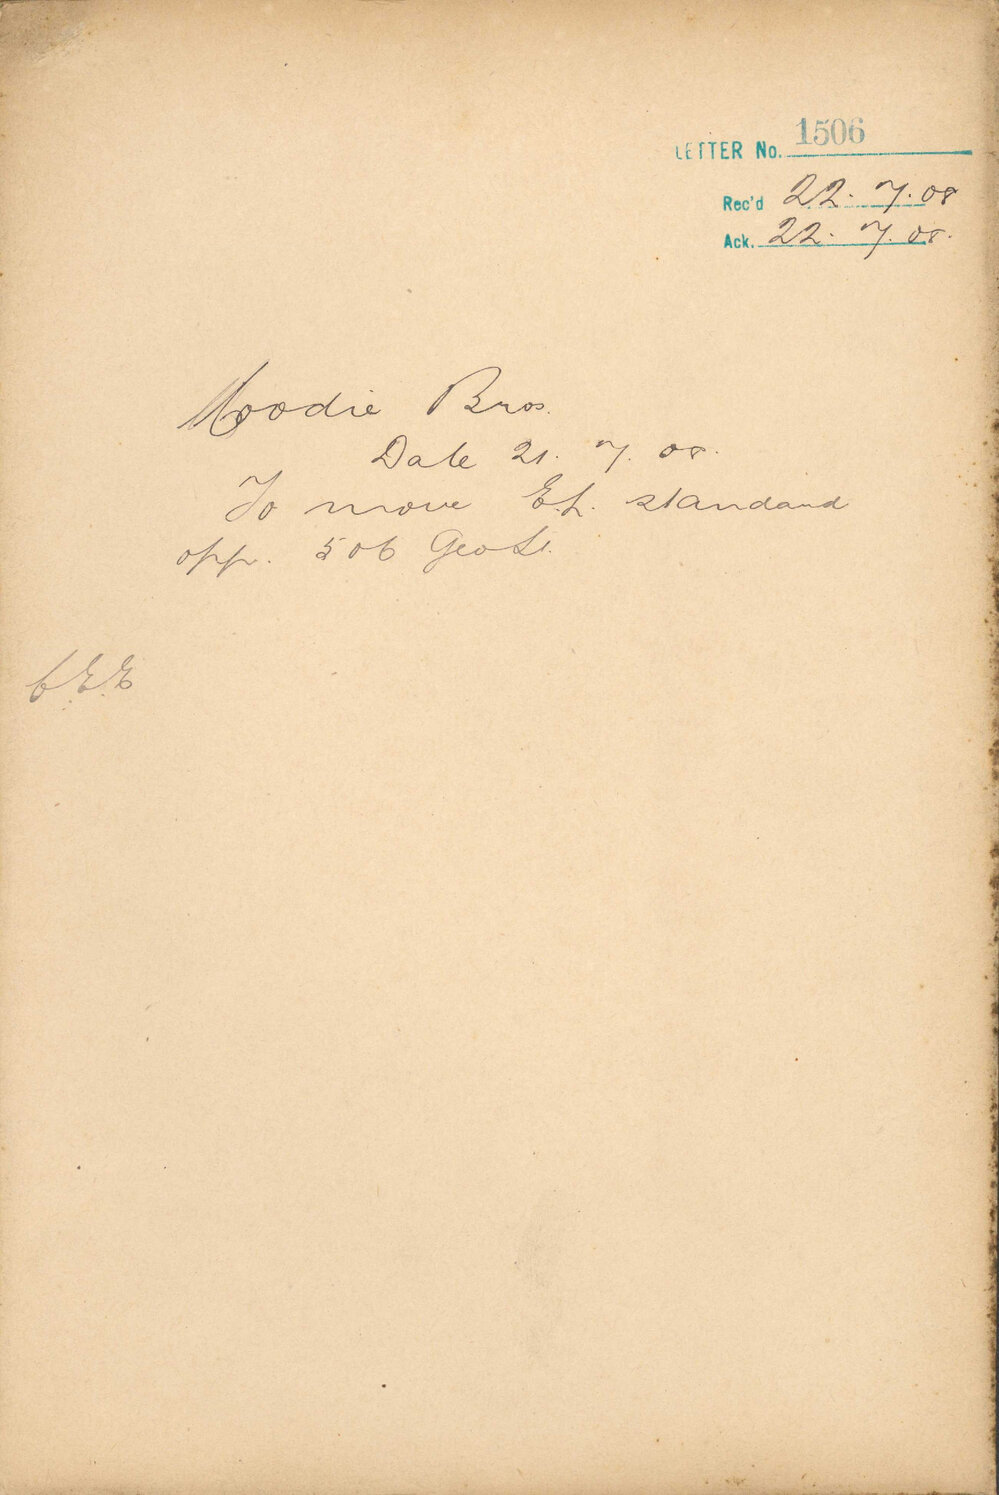 LETTER No. 1506
Rec'd 22. 7. 08
Ack. 22. 7. 08.
Moodie Bros.
Date 21. 7. 08.
To move E.L. standard
opp. 506 Geo St.
C.E.E